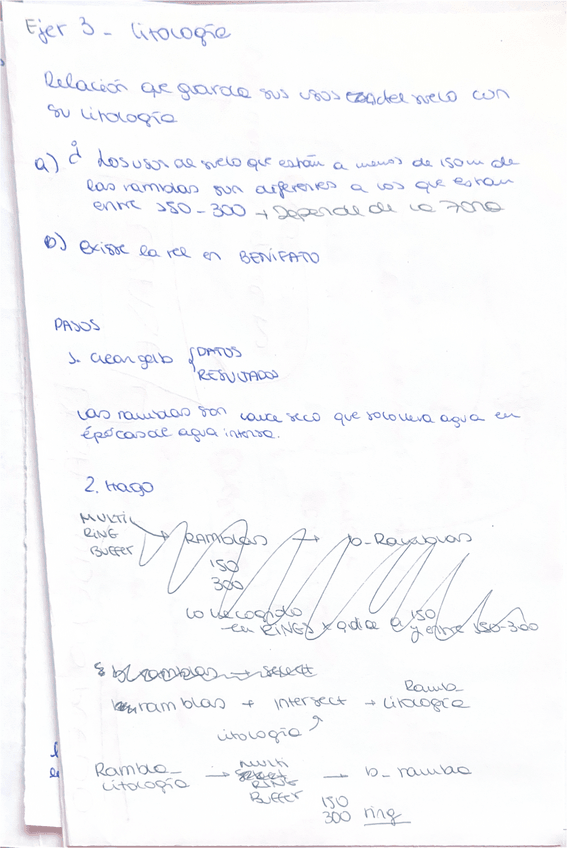 Ejer 3 - litología
Relación que guarda sus usos del suelo con
su litología
a) ¿ Los usos de suelo que están a menos de 150 m de
las ramblas son diferentes a los que estan
entre 150 - 300 → Depende de la zona
b) Existe la rel en BENIFATO
PASOS
1. Crean gdb { DATOS
RESULTADOS
Las ramblas son cauce seco que solo lleva agua en
épocas de agua intensa.
2. Hago
MULTI
RING
BUFFER
→ RAMBLAS → b_Ramblas
150
300
lo he cogido
en RINGS x q dice a 150
y entre 150-300
b_ramblas → select
ramblas + intersect → Rambla_
litología
litología
Rambla_
litología
→ MULTI
RING
BUFFER
→ b_rambla
150
300 ring